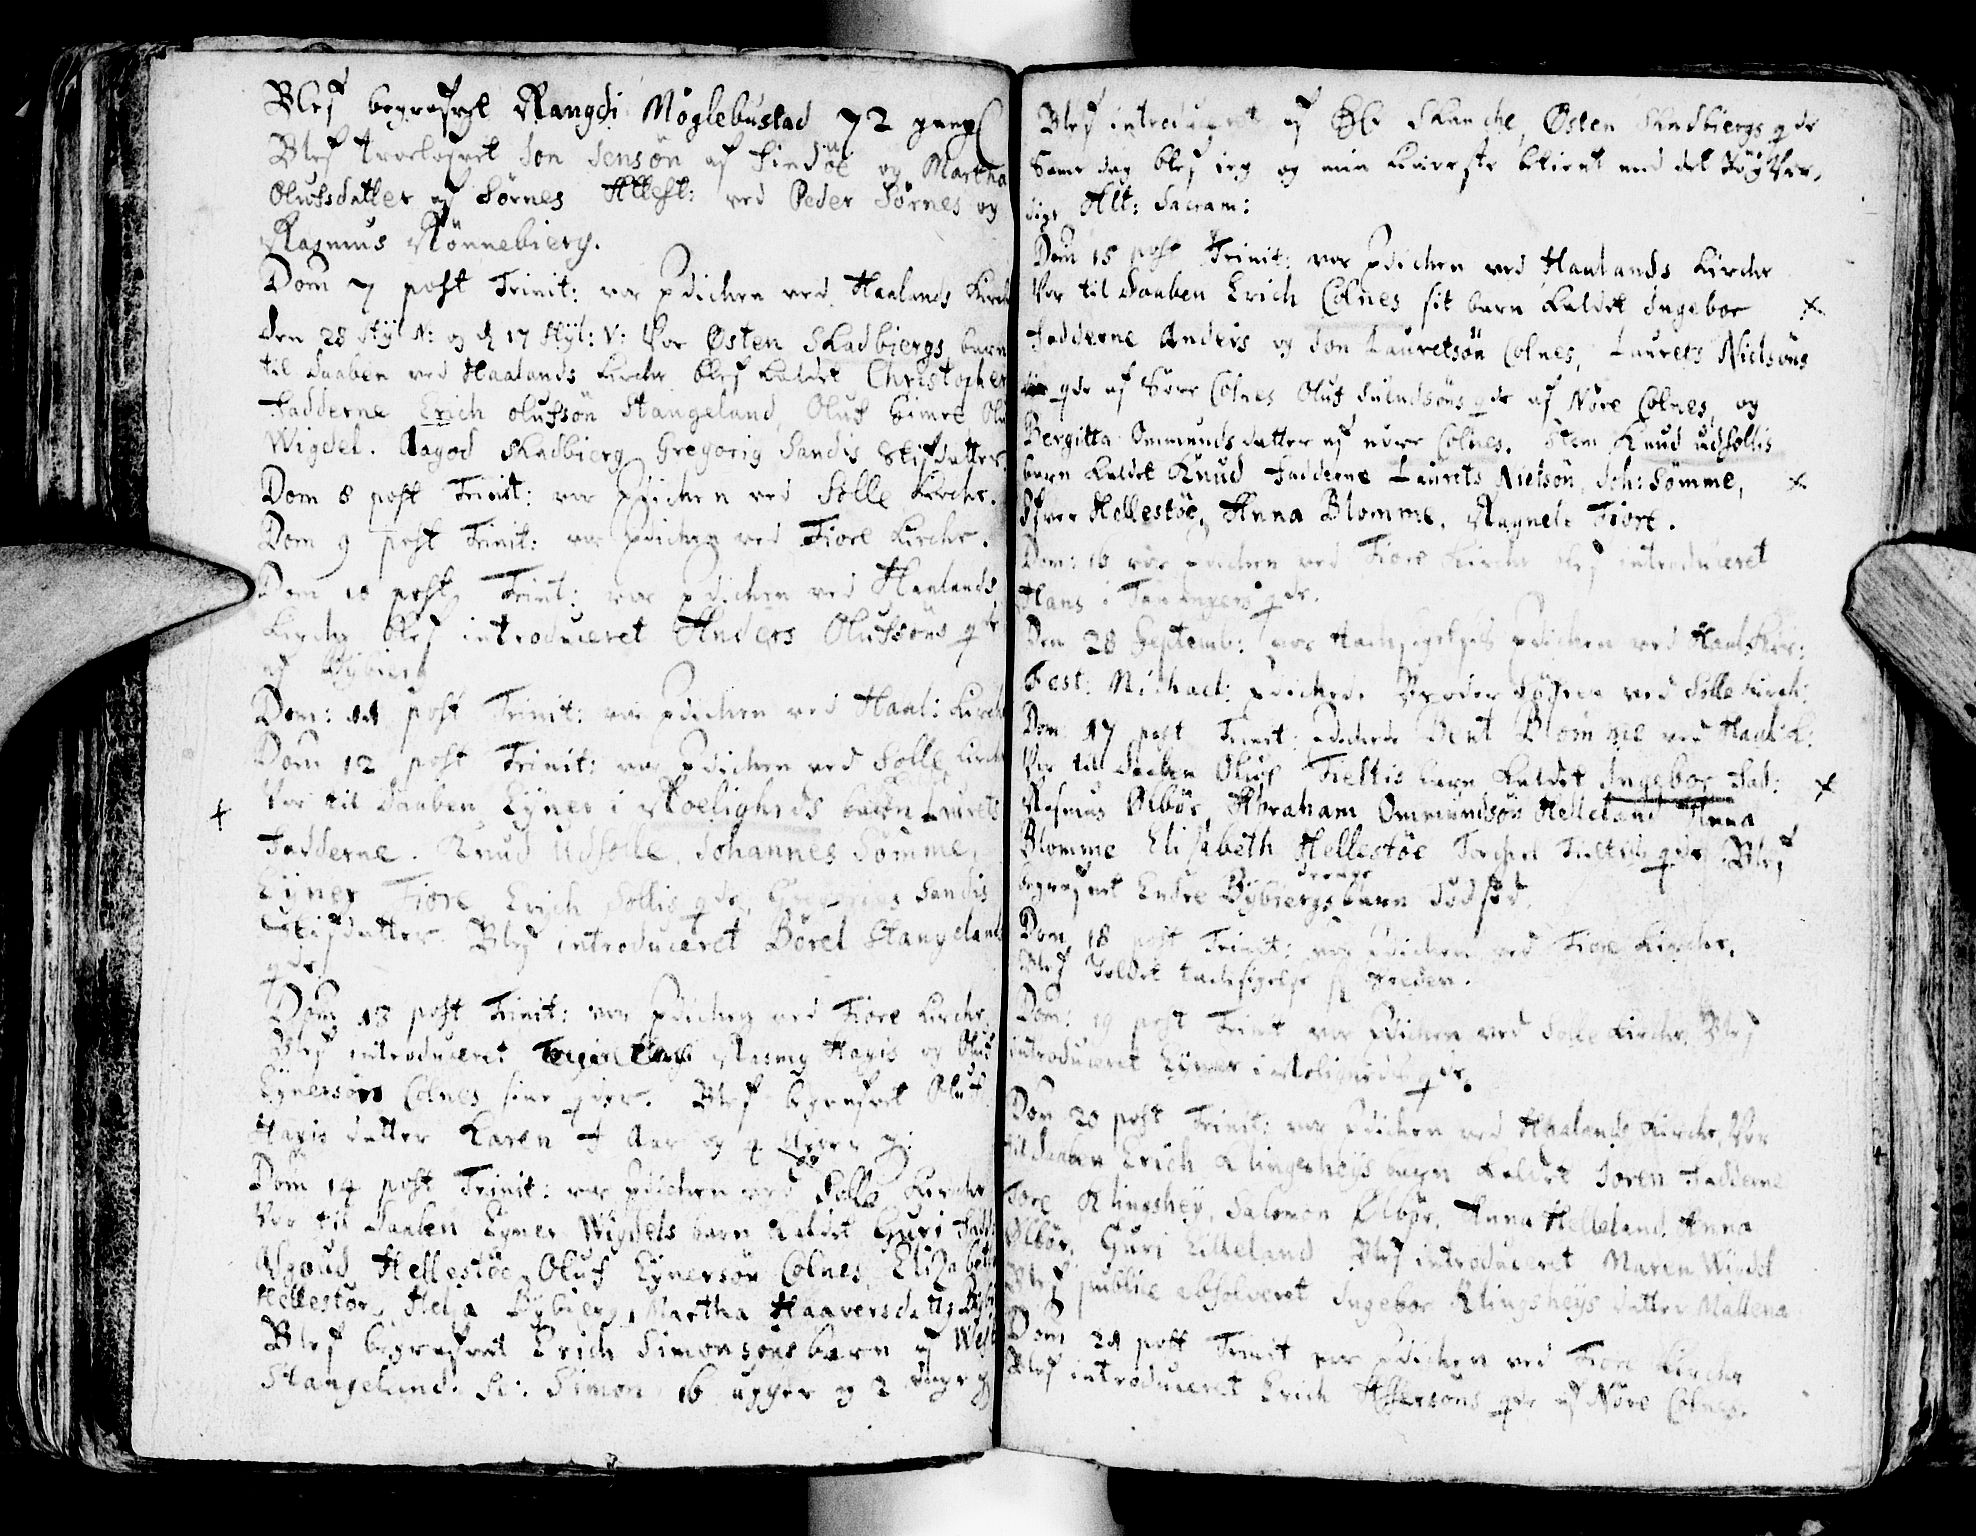 Blef begrafvet Rangdi Möglebustad 72 gang
Blef troelofvet Jon Jensön af Findöe og Martha
Olufsdatter af Sörnes Attest: ved Peder Sörnes og
Rasmus Rönnebierg.
Dom 7 post Trinit: var Prædichen ved Haalands Kirch
den 28 Styl N: og d 17 Styl: V: Var Østen Skadbiergs barn
til Daaben ved Haalands Kirche blef kaldet Christopher
Fadderne Erich Olufsön Stangeland, Oluf Kimre Olu
Wigdel. Aagod Skadbierg Gregorig Sandis Stifdatter
Dom 8 post Trinit: var Prædichen ved Solle Kirche.
Dom 9 post Trinit: var Prædichen ved Fiore Kirche.
Dom 10 post Trinit: var Prædichen ved Haalands
Kirche blef introduceret Anders Olufsöns qde
af Bybierg
Dom: 11 post Trinit: var Prædichen ved Haal: Kirch
Dom 12 post Trinit: var Prædichen ved Solle Kirch
Var til Daaben Eyner i Roeligheds barn Laurets
Fadderne. Knud Udsolle, Johannes Somme,
Eyner Fiore Erich Sollis qde, Gregorius Sandis
Stifdatter. Blef introduceret Börel Stangelands
qde
Dom 13 post Trinit: var Prædichen ved Fiore Kirche.
Blef introduceret Rasmg Hagis og Oluf
Eynersöns Colnes sine qder. Blef begrafvet Oluf
Hagis datter Karen Aar og 4 Uger
Dom 14 post Trinit: var Prædichen ved Solle Kirche
Var til Daaben Eyner Wigdels barn kaldet Guri Fadd:
Asgoud Hellestöe, Oluf Eynersön Colnes, Elizabeth
Hellestöe, Helja Bybierg, Martha Haaversdatter
Blef begrafvet Erich Simonsöns barn af West
Stangeland. Simon 16 uger og 2 dage
Blef introduceret af Skanche, Østen Skadbiergs qde
Samme dag blef ieg og min Kiereste betient med det Höyver,
dige Alt: Sacram:
Dom 15 post Trinit: var Prædichen ved Haalands Kirche
Var til Daaben Erich Colnes sit barn kaldet Ingebor
Fadderne Anders og Jon Lauretsön Colnes, Laurets Nielsöns
qde af Sore Colnes Oluf Suendsöns qde af Nöre Colnes, og
Bergitta Ommunds datter af nöre Colnes. Item Knud Udsollis
barn kaldet Knud Fadderne Laurets Nielsön, Joh: Sömme,
Ifver Hellestöe, Anna Blomme, Ragnele Fiore.
Dom: 16 var Prædichen ved Fiore Kirche blef introduceret
Hans i Tanangers qde.
Den 28 Septemb: var Prædichen ved Haal: Kir:
Fest: Michael: Prædichede Broder ved Solle Kirch:
Dom 17 post Trinit: Prædichede Bent Blomme ved Haal: K:
Var til Daaben Oluf Tieltis barn kaldet Ingebor Fad:
Rasmus Ølbör, Abraham Ommundsön Helleland Anna
Blomme Elisabeth Hellestöe Torchel Tieltis qde Blef
drenge
begrafvet Endre Bybiergs barn dödföd.
Dom 18 post Trinit: var Prædichen ved Fiore Kirche.
Blef holdet tachsigelse for Freden.
Dom: 19 post Trinit var Prædichen ved Solle Kirche, Blef
introduceret Eyner i Roligheds qde.
Dom 20 post Trinit: var Prædichen ved Haalands Kirche, Var
til Daaben Erich Klingsheys barn kaldet Soren Fadderne
Tore Klingshey, Salomon Ølbör, Anna Helleland, Anna
Ølbör, Guri Lilleland Blef introduceret Maren Wigdel
Blef publice absolveret Ingebor Klingsheys datter Mallena
Dom 21 post Trinit var Prædichen ved Fiore Kirche
Blef introduceret Erich Assersöns qde af Nöre Colnes.